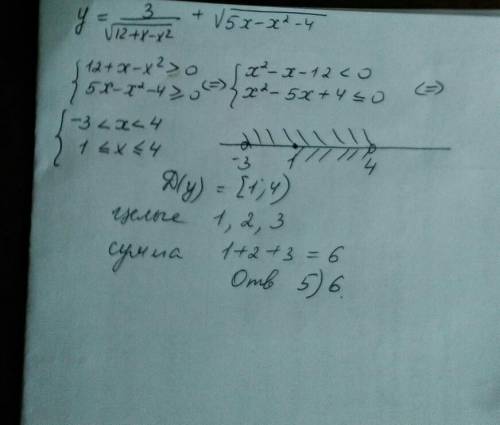 y = 3/√(12+x-x²) + √(5x-x²-4)
{ 12+x-x² > 0 (=) { x²-x-12 < 0 (=)
{ 5x-x²-4 ≥ 0 { x²-5x+4 ≤ 0
{ -3 < x < 4
{ 1 ≤ x ≤ 4
-3 1 4
D(y) = [1; 4)
целые 1, 2, 3
сумма 1+2+3 = 6
Отв 5) 6.